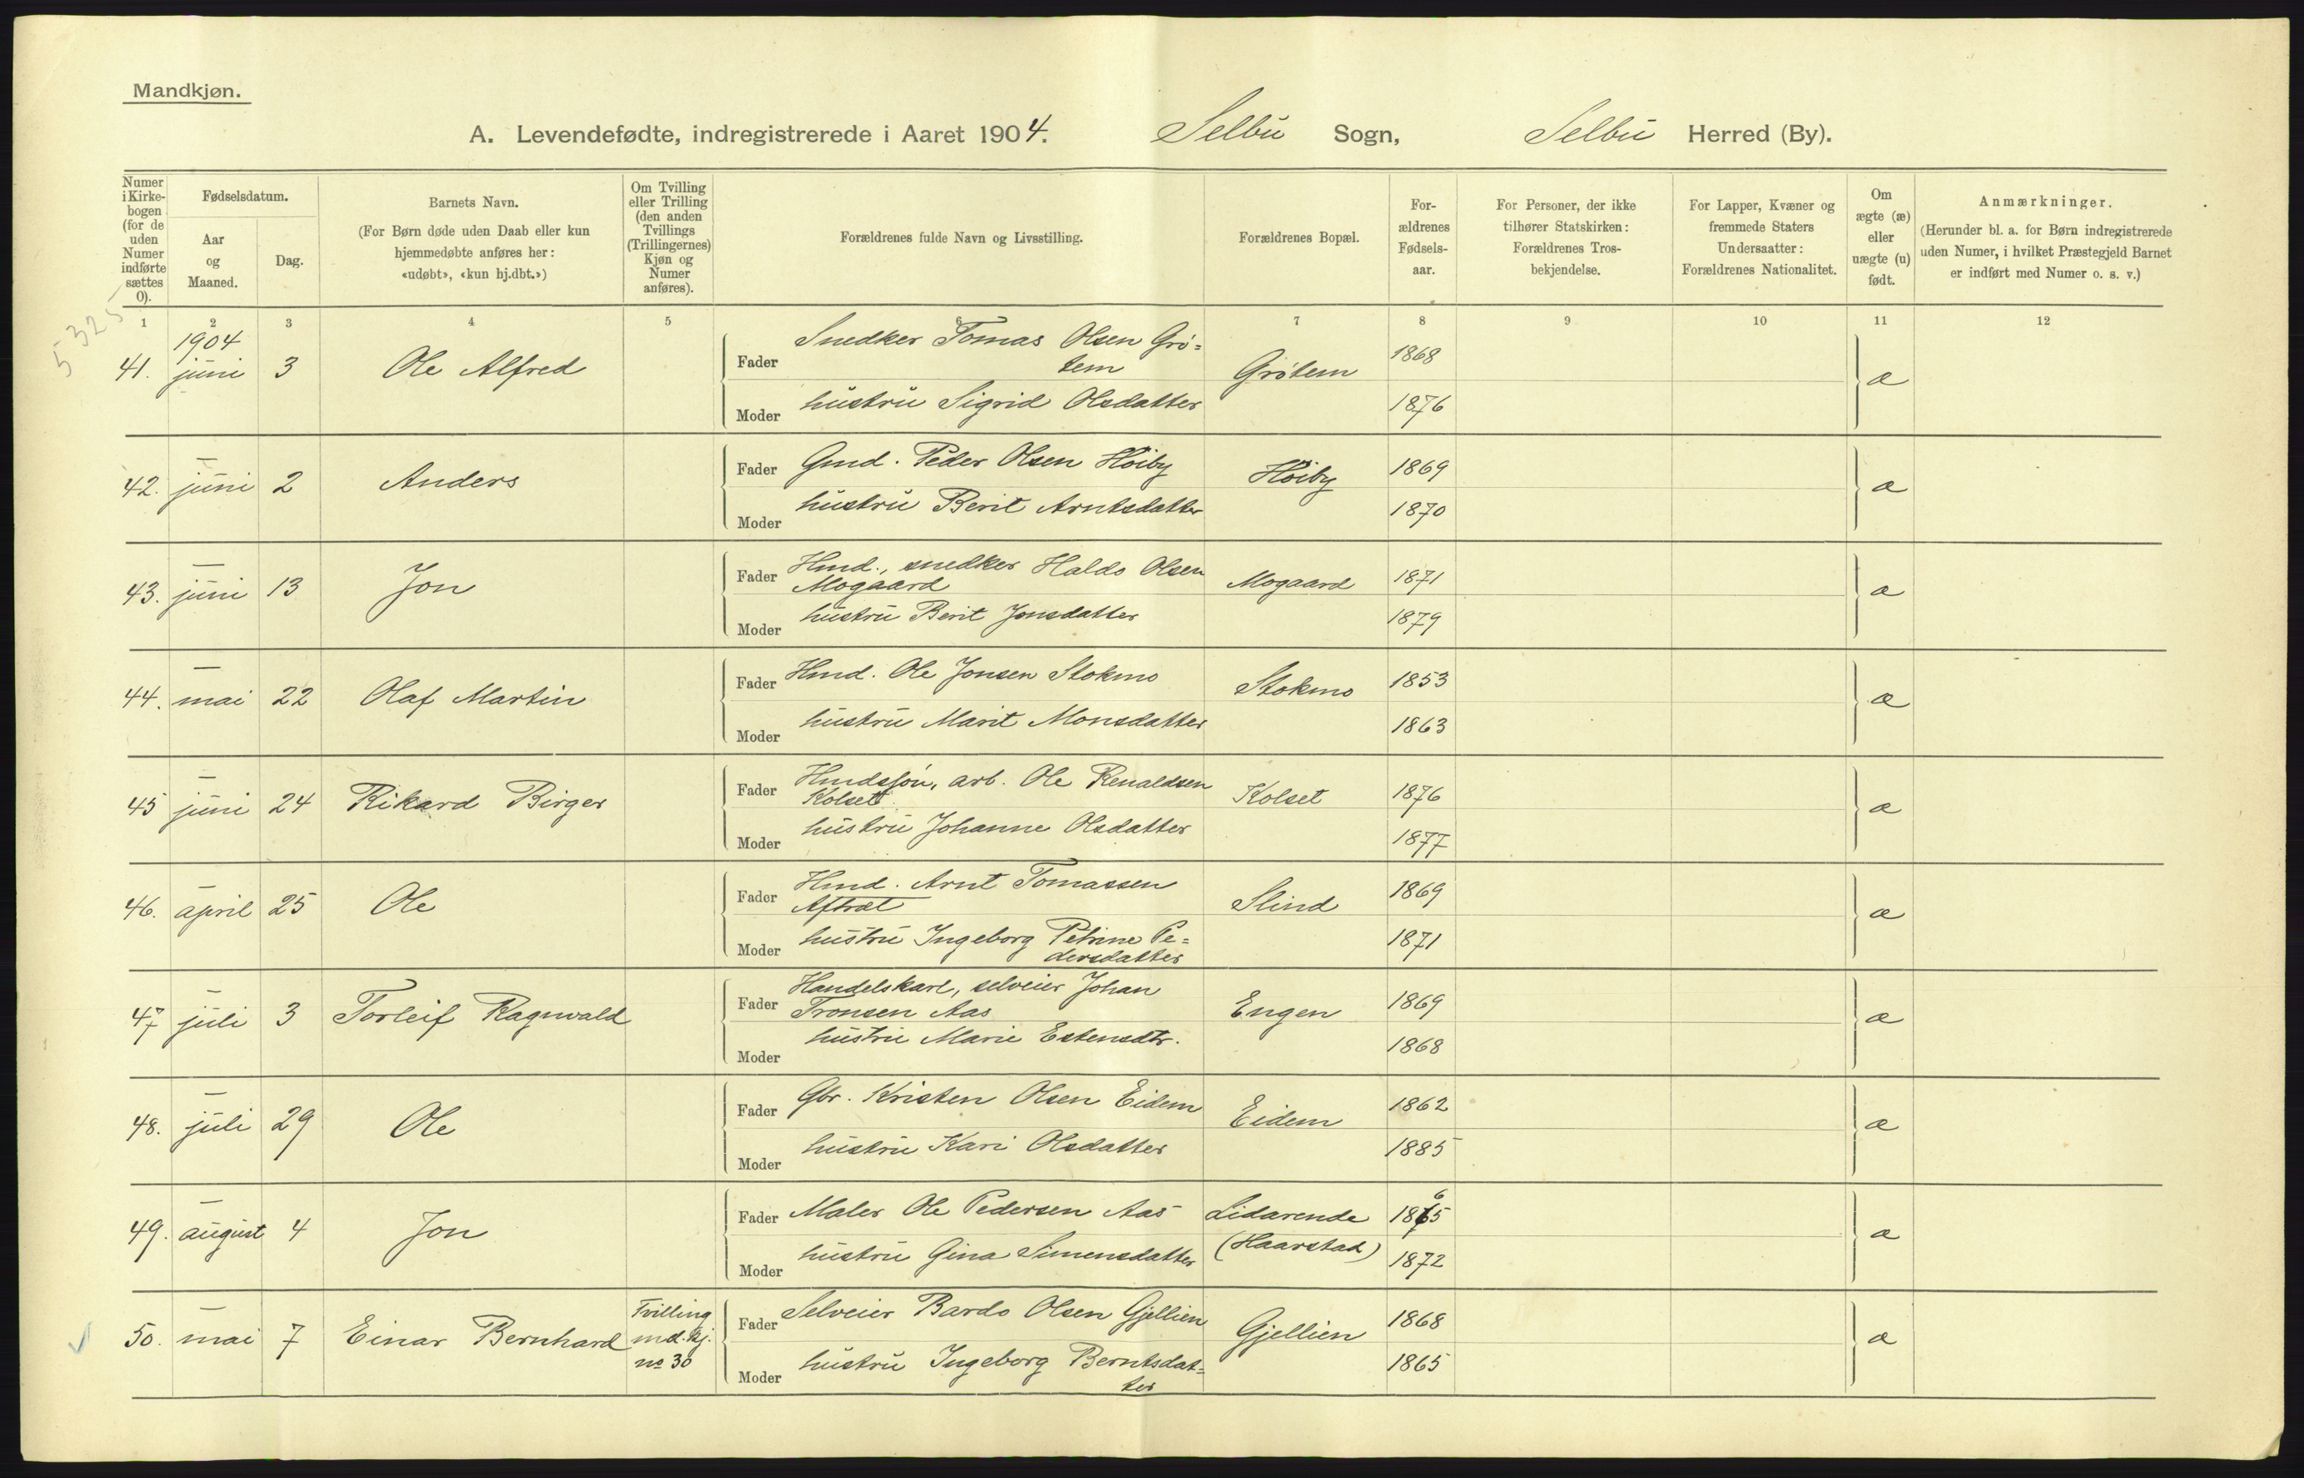 Mandkjøn.
A. Levendefødte, indregistrerede i Aaret 1904. Selbu Sogn, Selbu Herred (By).
Numer i Kirkebogen (for de uden Numer indførte sættes 0).
Fødselsdatum.
Aar og Maaned.
Dag.
Barnets Navn.
(For Børn døde uden Daab eller kun hjemmedøbte anføres her: «udøbt», «kun hj.dbt.»)
Om Tvilling eller Trilling (den anden Tvillings (Trillingernes) Kjøn og Numer anføres).
Forældrenes fulde Navn og Livsstilling.
Forældrenes Bopæl.
Forældrenes Fødselsaar.
For Personer, der ikke tilhører Statskirken: Forældrenes Trosbekjendelse.
For Lapper, Kvæner og fremmede Staters Undersaatter: Forældrenes Nationalitet.
Om ægte (æ) eller uægte (u) født.
Anmærkninger.
(Herunder bl. a. for Børn indregistrerede uden Numer, i hvilket Præstegjeld Barnet er indført med Numer o. s. v.)
5325
1 2 3 4 5 6 7 8 9 10 11 12
1904
41. juni 3 Ole Alfred Fader Snedker Tomas Olsen Grø=
tem Grøtem 1868 æ
Moder hustru Sigrid Olsdatter 1876
—
42. juni 2 Anders Fader Gmd. Peder Olsen Høiby Høiby 1869 æ
Moder hustru Berit Arntsdatter 1870
—
43. juni 13 Jon Fader Hmd., snedker Haldo Olsen
Mogaard Mogaard 1871 æ
Moder hustru Berit Jonsdatter 1879
—
44. mai 22 Olaf Martin Fader Hmd. Ole Jonsen Stokmo Stokmo 1853 æ
Moder hustru Marit Monsdatter 1863
—
45 juni 24 Rikard Birger Fader Hmdssøn, arb. Ole Renaldsen
Kolset Kolset 1876 æ
Moder hustru Johanne Olsdatter 1877
—
46. april 25 Ole Fader Hmd. Arnt Tomassen
Aftræt Slind 1869 æ
Moder hustru Ingeborg Petrine Pe=
dersdatter 1871
—
47 juli 3 Torleif Ragnvald Fader Handelskarl, selveier Johan
Tronsen Aas Engen 1869 æ
Moder hustru Marie Estensdtr. 1868
—
48. juli 29 Ole Fader Gbr. Kristen Olsen Eidem Eidem 1862 æ
Moder hustru Kari Olsdatter 1885
—
49. august 4 Jon Fader Maler Ole Pedersen Aas Lidarende 1865 æ
Moder hustru Gina Simensdatter (Haarstad) 1872
—
50. mai 7 Einar Bernhard Tvilling
md. kj.
no 30 Fader Selveier Bardo Olsen Gjellien Gjellien 1868 æ
Moder hustru Ingeborg Berntsdat=
ter 1865